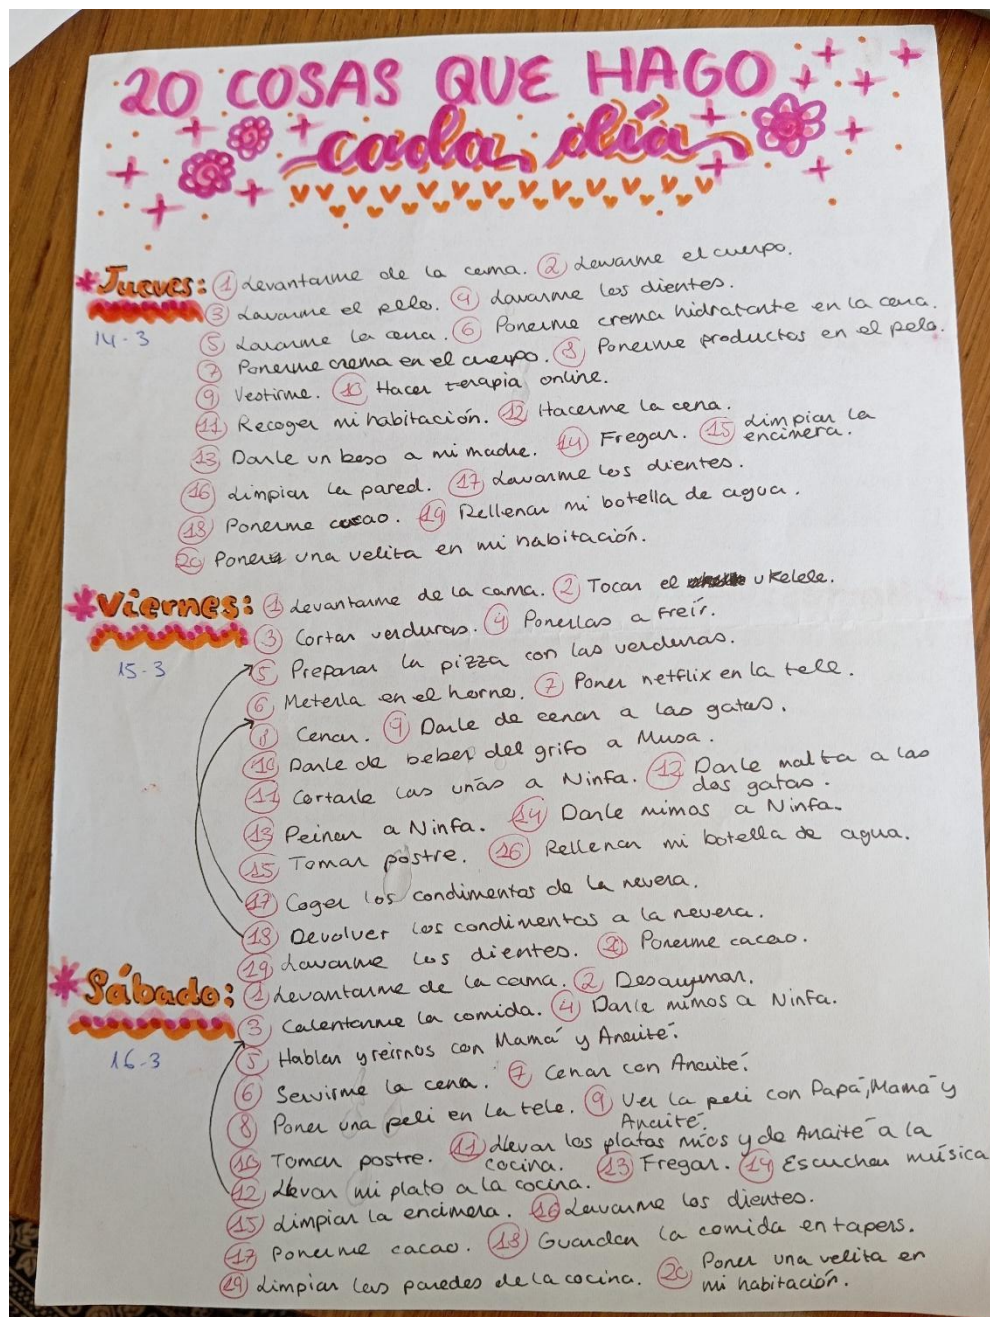 20 COSAS QUE HAGO
cada día
Jueves: 1 Levantarme de la cama. 2 Lavarme el cuerpo.
14-3
3 Lavarme el pelo. 4 Lavarme los dientes.
5 Lavarme la cara. 6 Ponerme crema hidratante en la cara.
7 Ponerme crema en el cuerpo. 8 Ponerme productos en el pelo.
9 Vestirme. 10 Hacer terapia online.
11 Recoger mi habitación. 12 Hacerme la cena.
13 Darle un beso a mi madre. 14 Fregar. 15 Limpiar la encimera.
16 Limpiar la pared. 17 Lavarme los dientes.
18 Ponerme cacao. 19 Rellenar mi botella de agua.
20 Poner una velita en mi habitación.
Viernes: 1 Levantarme de la cama. 2 Tocar el ukelele.
15-3
3 Cortar verduras. 4 Ponerlas a freír.
5 Preparar la pizza con las verduras.
6 Meterla en el horno. 7 Poner netflix en la tele.
8 Cenar. 9 Darle de cenar a las gatas.
10 Darle de beber del grifo a Musa.
11 Cortarle las uñas a Ninfa. 12 Darle malta a las dos gatas.
13 Peinar a Ninfa. 14 Darle mimos a Ninfa.
15 Tomar postre. 16 Rellenar mi botella de agua.
17 Coger los condimentos de la nevera.
18 Devolver los condimentos a la nevera.
19 Lavarme los dientes. 20 Ponerme cacao.
Sábado: 1 Levantarme de la cama. 2 Desayunar.
16-3
3 Calentarme la comida. 4 Darle mimos a Ninfa.
5 Hablar y reirnos con Mamá y Anaité.
6 Servirme la cena. 7 Cenar con Anaité.
8 Poner una peli en la tele. 9 Ver la peli con Papá, Mamá y Anaité.
10 Tomar postre. 11 Llevar los platos míos y de Anaité a la cocina.
12 Llevar mi plato a la cocina. 13 Fregar. 14 Escuchar música
15 Limpiar la encimera. 16 Lavarme los dientes.
17 Ponerme cacao. 18 Guardar la comida en tapers.
19 Limpiar las paredes de la cocina. 20 Poner una velita en mi habitación.